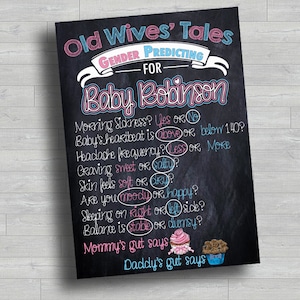 Old Wives' Tales
Gender Predicting
FOR
Baby Robinson
Morning Sickness? Yes or No
Baby's heartbeat is above or below 140?
Headache frequency? Less or More
Craving sweet or salty?
Skin feels soft or dry?
Are you moody or happy?
Sleeping on right or left side?
Balance is stable or clumsy?
Mommy's gut says
Daddy's gut says